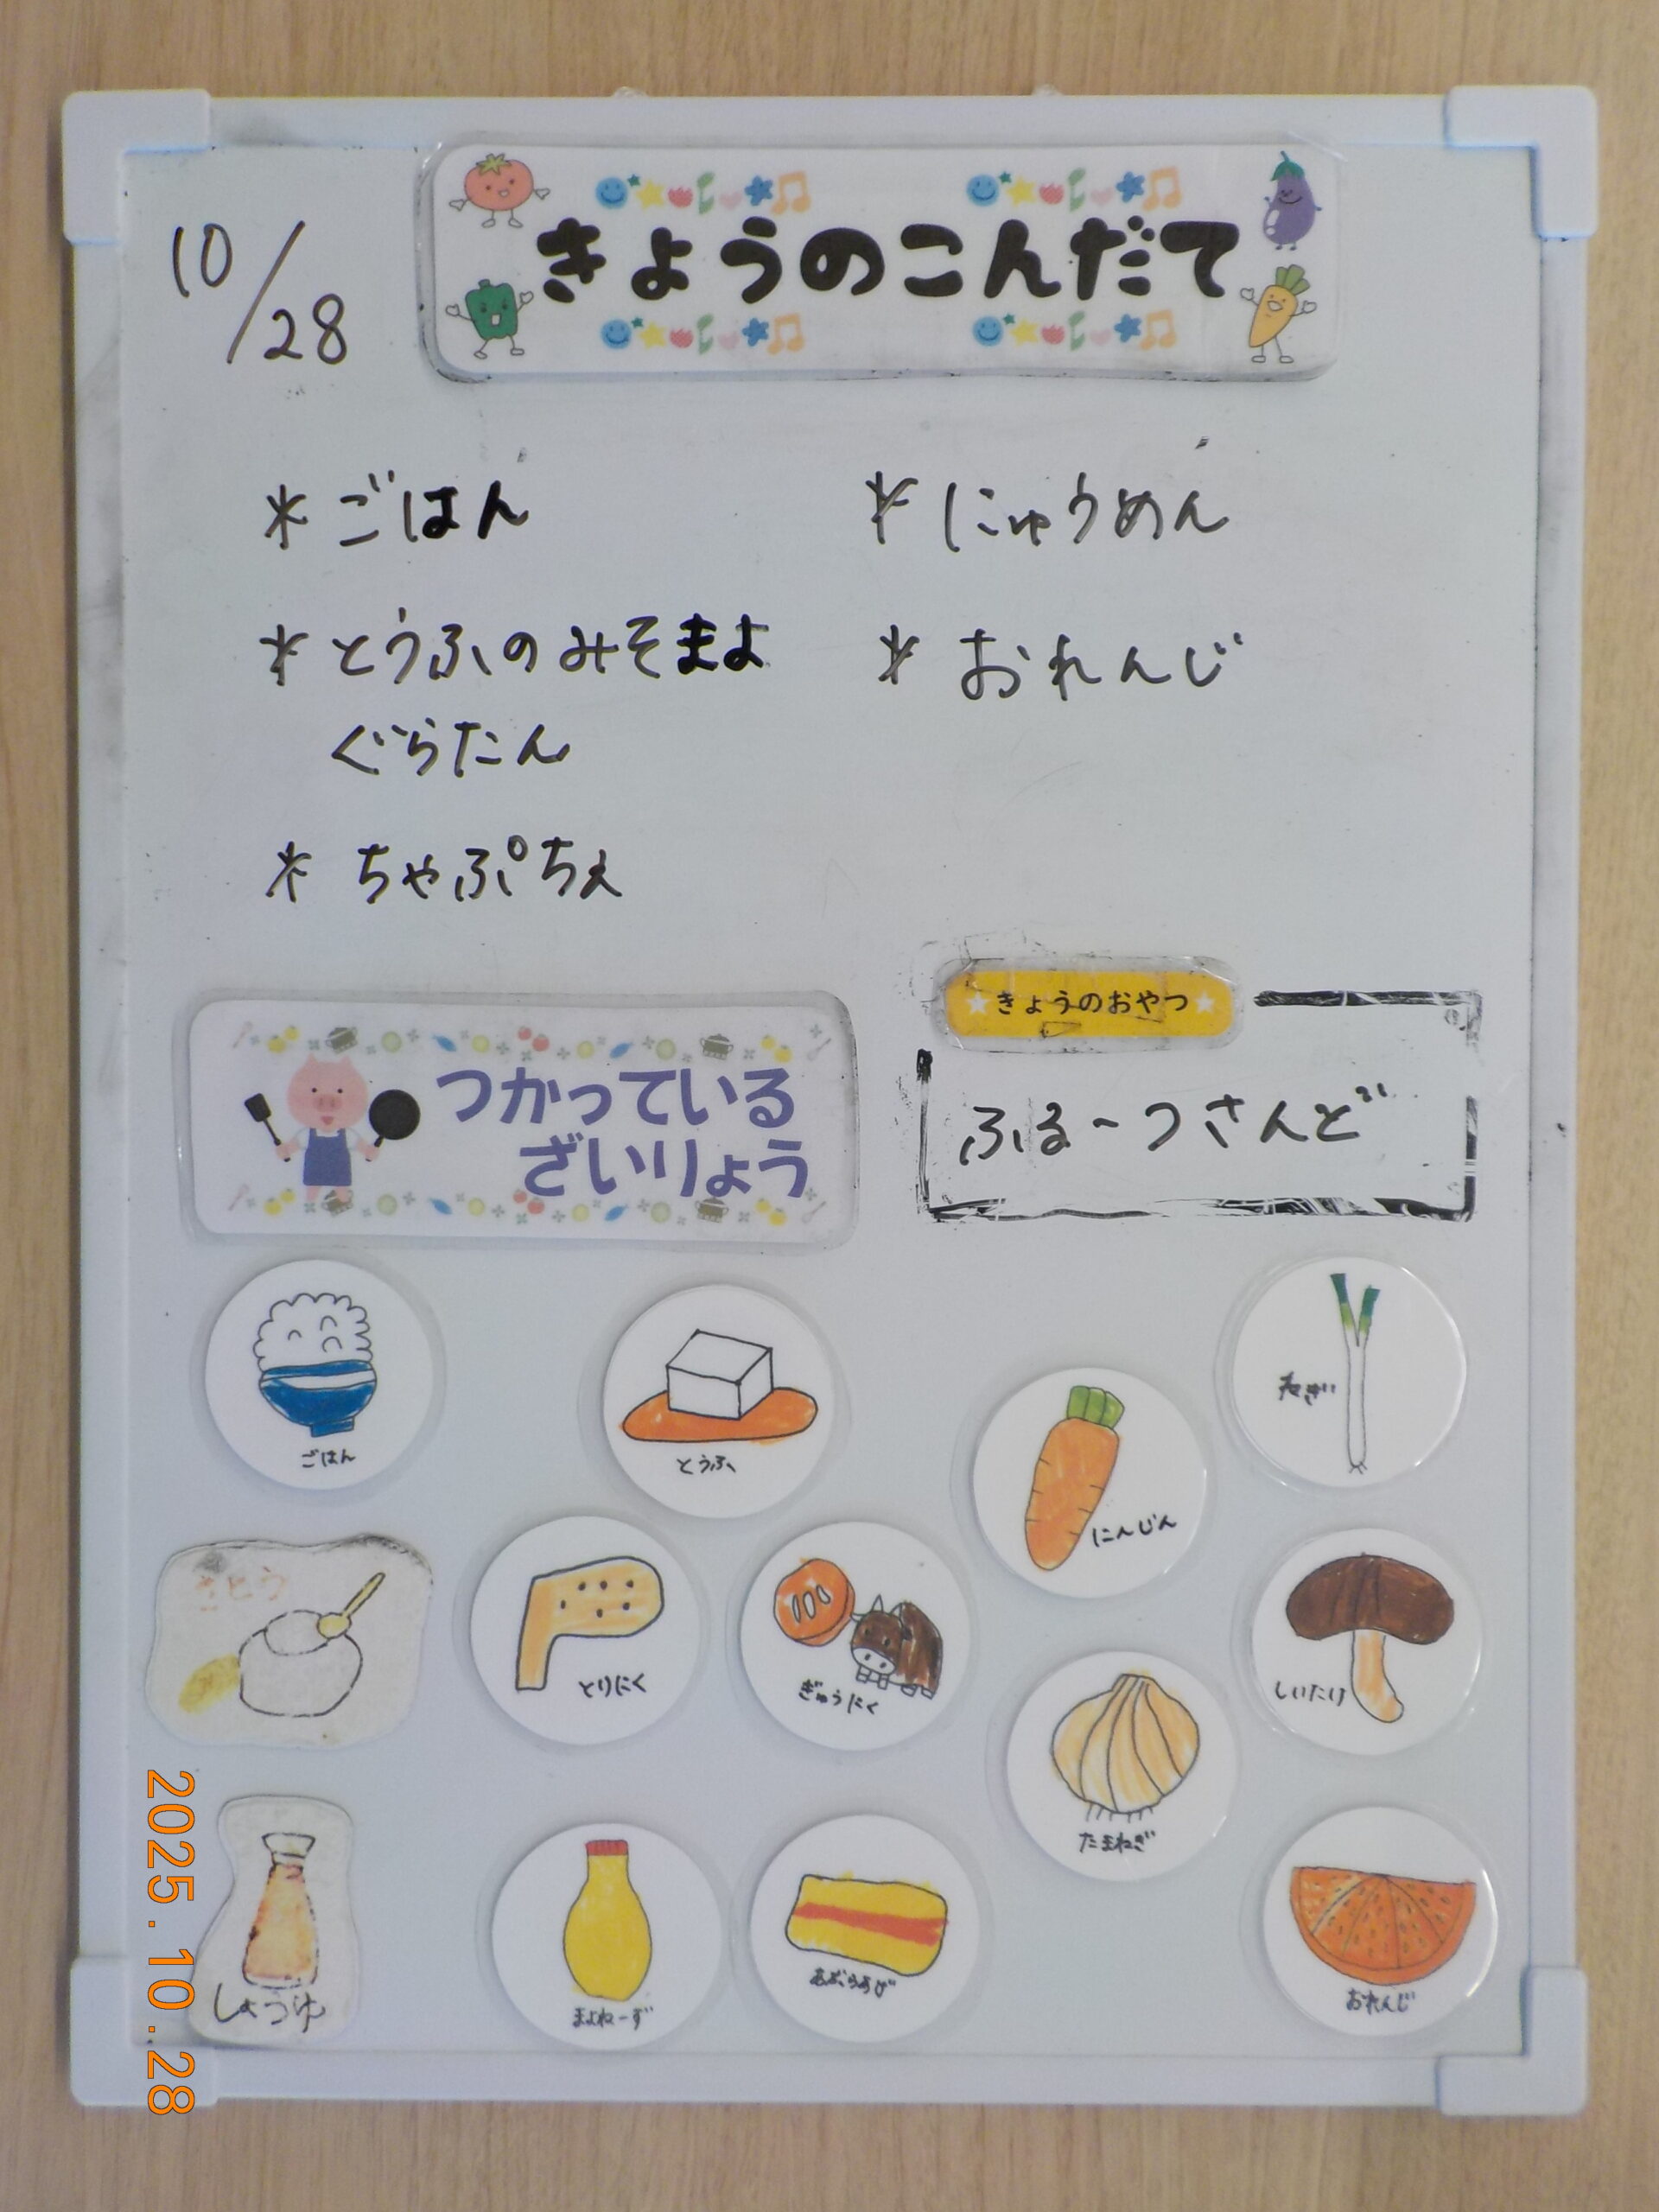 10/28
きょうのこんだて
* ごはん
* とうふのみそまよ
ぐらたん
* ちゃぷちぇ
* にゅうめん
* おれんじ
★きょうのおやつ★
ふるーつさんど
つかっている
ざいりょう
ごはん
とうふ
にんじん
ねぎ
さとう
とりにく
ぎゅうにく
たまねぎ
しいたけ
しょうゆ
まよねーず
あぶらあげ
おれんじ
2025.10.28